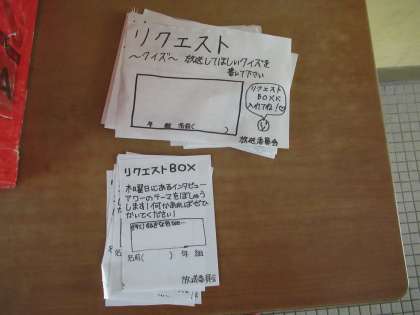 リクエスト
～クイズ～ 放送してほしいクイズを
書いて下さい
リクエスト
BOXに
入れてね!
年 組 名前( )
放送委員会
リクエストBOX
木曜日にあるインタビュー
アワーのテーマをぼしゅう
します!何かあればぜひ
かいてください!
(例)好きな色は…
名前( ) 年 組
放送委員会